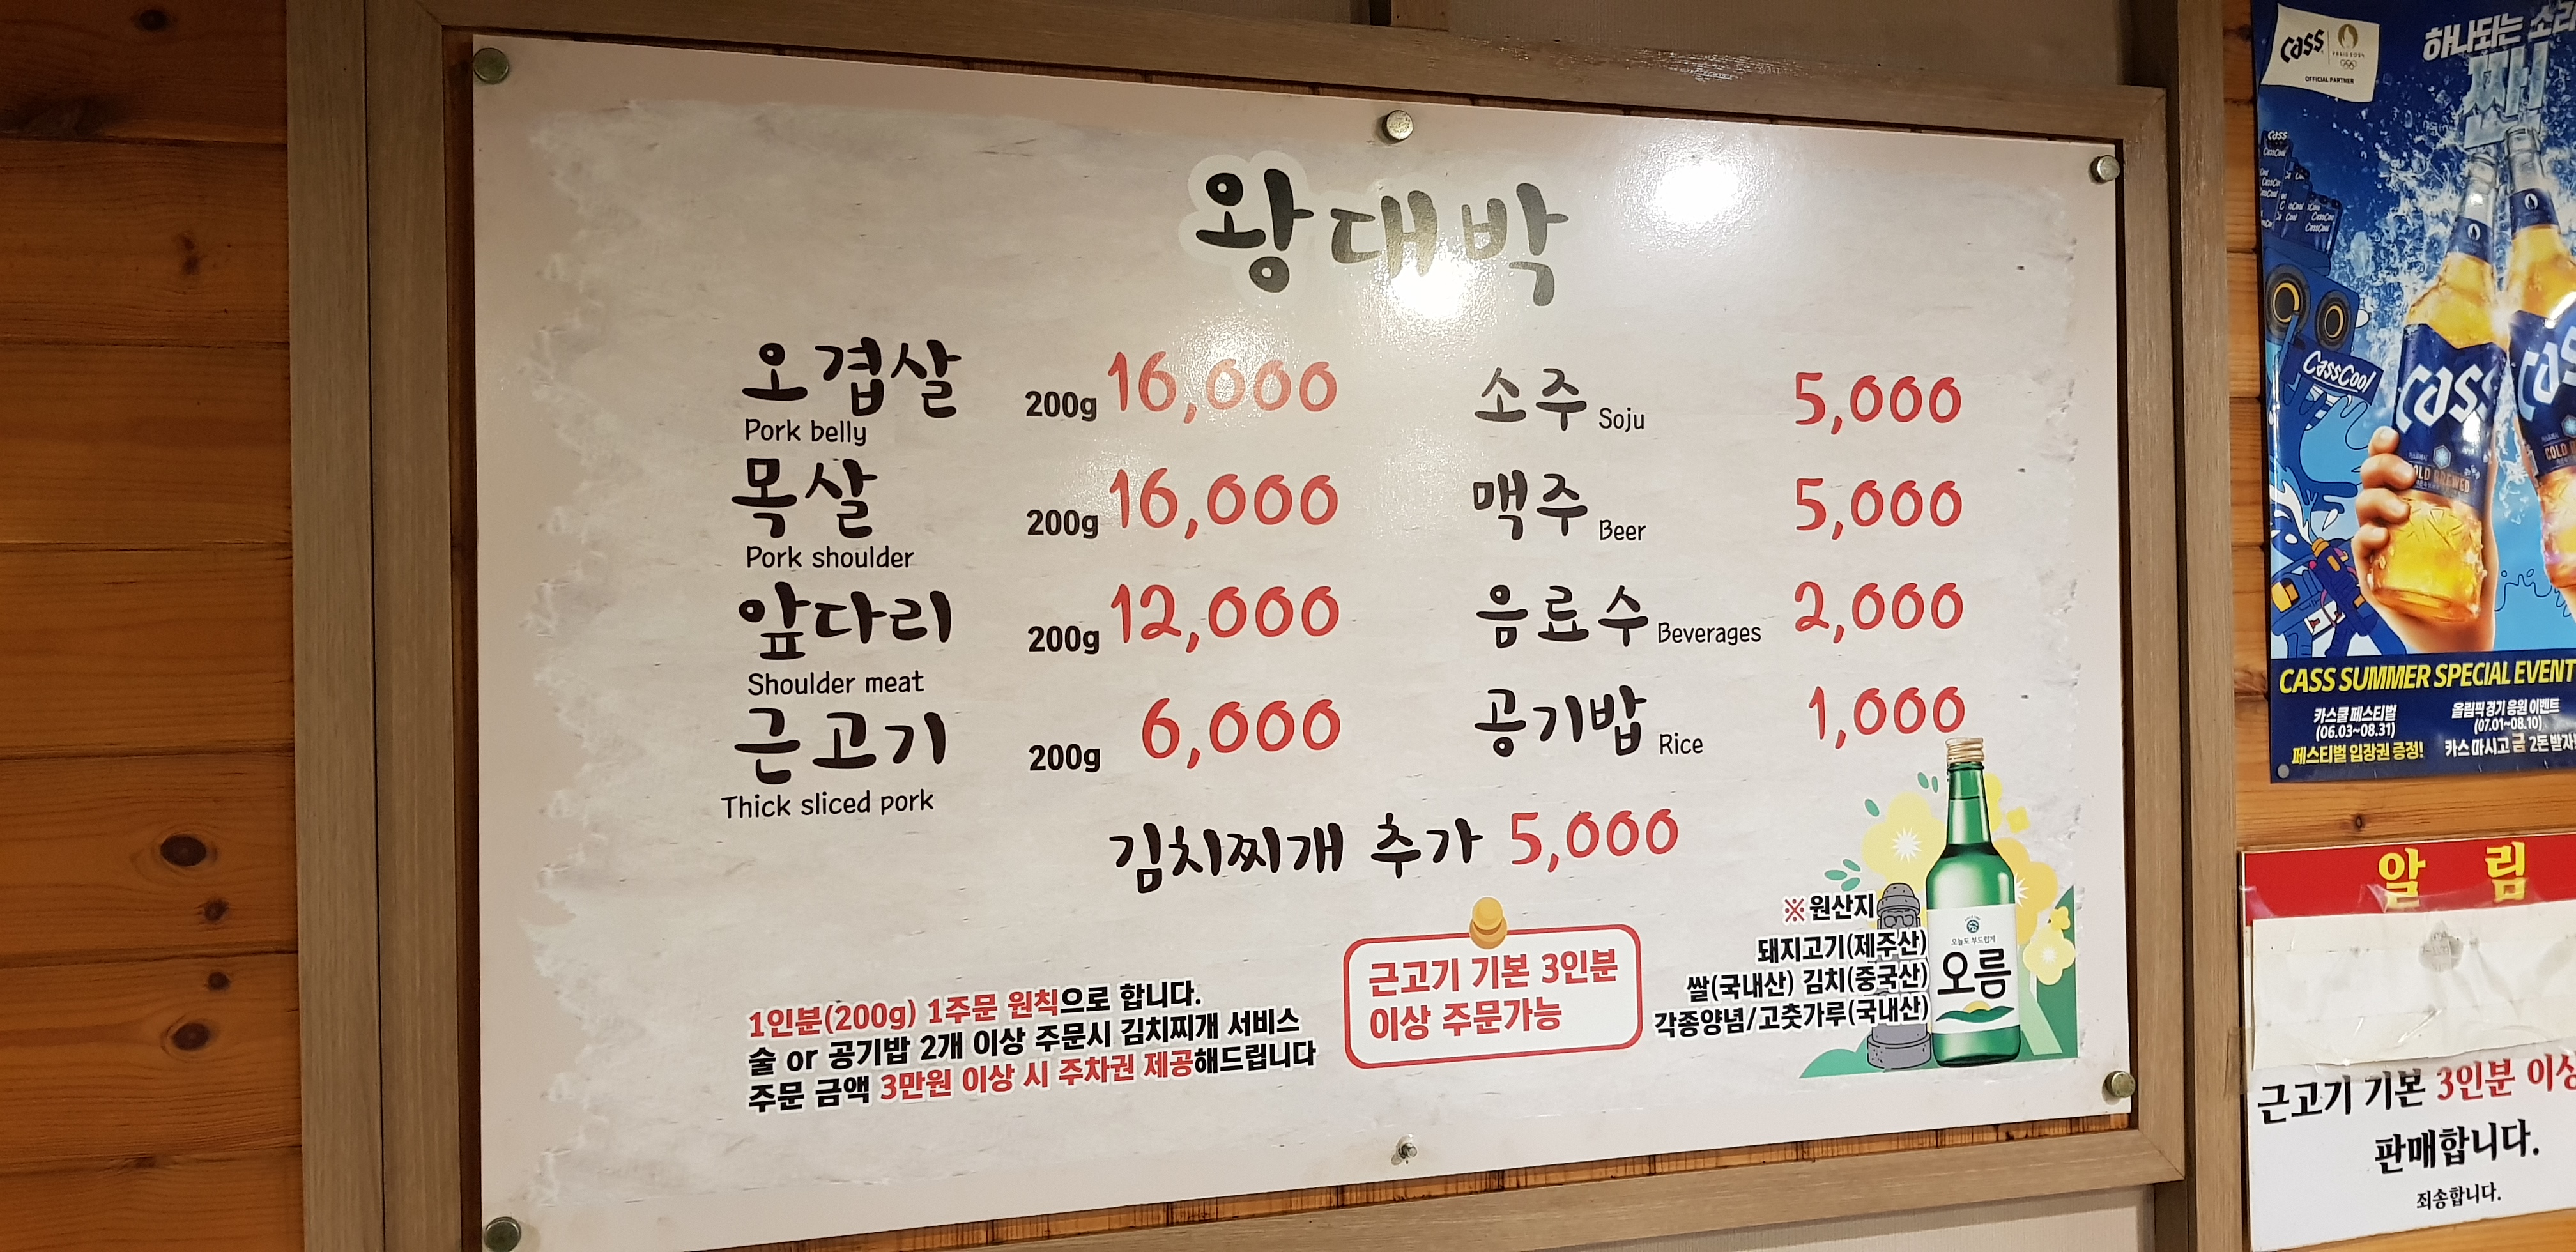 왕대박
오겹살 200g 16,000
Pork belly
목살 200g 16,000
Pork shoulder
앞다리 200g 12,000
Shoulder meat
근고기 200g 6,000
Thick sliced pork
소주 Soju 5,000
맥주 Beer 5,000
음료수 Beverages 2,000
공기밥 Rice 1,000
김치찌개 추가 5,000
1인분(200g) 1주문 원칙으로 합니다.
술 or 공기밥 2개 이상 주문시 김치찌개 서비스
주문 금액 3만원 이상 시 주차권 제공해드립니다
근고기 기본 3인분
이상 주문가능
※원산지
돼지고기(제주산)
쌀(국내산) 김치(중국산)
각종양념/고춧가루(국내산)
오늘도 부드럽게
오름
Cass
PARIS 2024
OFFICIAL PARTNER
하나되는 소리
짜
CassCool
Cass
COLD BREWED
CASS SUMMER SPECIAL EVENT
카스쿨 페스티벌
(06.03~08.31)
페스티벌 입장권 증정!
올림픽 경기 응원 이벤트
(07.01~08.10)
카스 마시고 금 2돈 받자
알 림
근고기 기본 3인분 이상
판매합니다.
죄송합니다.